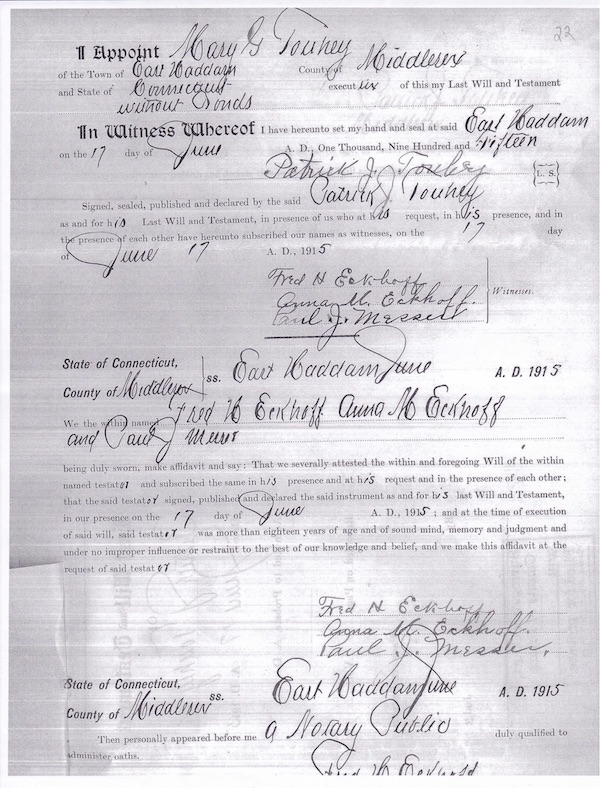 22
I Appoint Mary G Touhey
of the Town of East Haddam County of Middlesex
and State of Connecticut executrix of this my Last Will and Testament
without Bonds
In Witness Whereof I have hereunto set my hand and seal at said East Haddam
on the 17 day of June A. D., One Thousand, Nine Hundred and Fifteen
Patrick J. Touhey L. S.
Signed, sealed, published and declared by the said Patrick J. Touhey
as and for his Last Will and Testament, in presence of us who at his request, in his presence, and in
the presence of each other have hereunto subscribed our names as witnesses, on the 17 day
of June 17 A. D., 1915
Fred H Eckhoff
Anna M. Eckhoff. Witnesses.
Paul J. Messer
State of Connecticut,
County of Middlesex ss. East Haddam June A. D. 1915
We the within named Fred H Eckhoff Anna M Eckhoff
and Paul J
being duly sworn, make affidavit and say: That we severally attested the within and foregoing Will of the within
named testator and subscribed the same in his presence and at his request and in the presence of each other;
that the said testator signed, published and declared the said instrument as and for his last Will and Testament,
in our presence on the 17 day of June A. D., 1915; and at the time of execution
of said will, said testator was more than eighteen years of age and of sound mind, memory and judgment and
under no improper influence or restraint to the best of our knowledge and belief, and we make this affidavit at the
request of said testator
Fred H Eckhoff
Anna M. Eckhoff.
Paul J. Messer,
State of Connecticut,
County of Middlesex ss. East Haddam June A. D. 1915
Then personally appeared before me a Notary Public duly qualified to
administer oaths.
Fred H Eckhoff